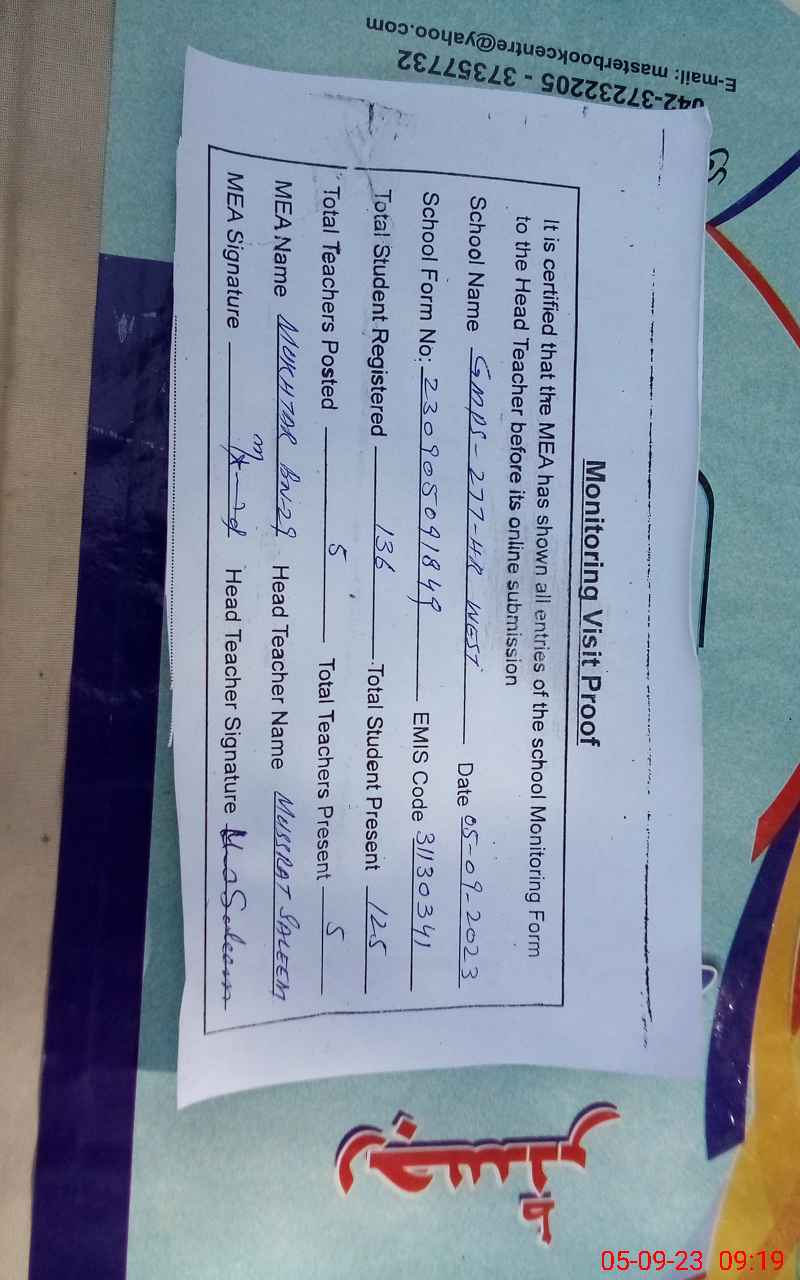 Monitoring Visit Proof
It is certified that the MEA has shown all entries of the school Monitoring Form
to the Head Teacher before its online submission
School Name GMPS-277-HR WEST Date 05-09-2023
School Form No: 230905091849 EMIS Code 31130341
Total Student Registered 136 Total Student Present 125
Total Teachers Posted 5 Total Teachers Present 5
MEA Name MUKHTAR BN-29 Head Teacher Name MUSSRAT SALEEM
MEA Signature Head Teacher Signature Saleem
042-37232205 - 37357732
E-mail: masterbookcentre@yahoo.com
05-09-23 09:19